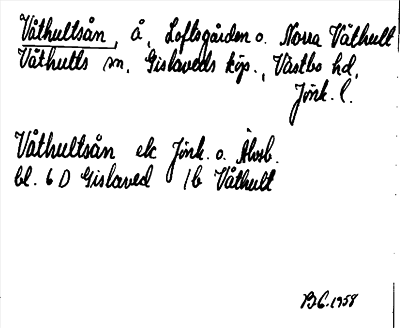 Våthultsån, å, Loftsgården o. Norra Våthult
Våthults sn, Gislaveds köp., Västbo hd,
Jönk. l.
Våthultsån ek Jönk. o. Älvsb.
bl. 6 D Gislaved 1b Våthult
B.C. 1958